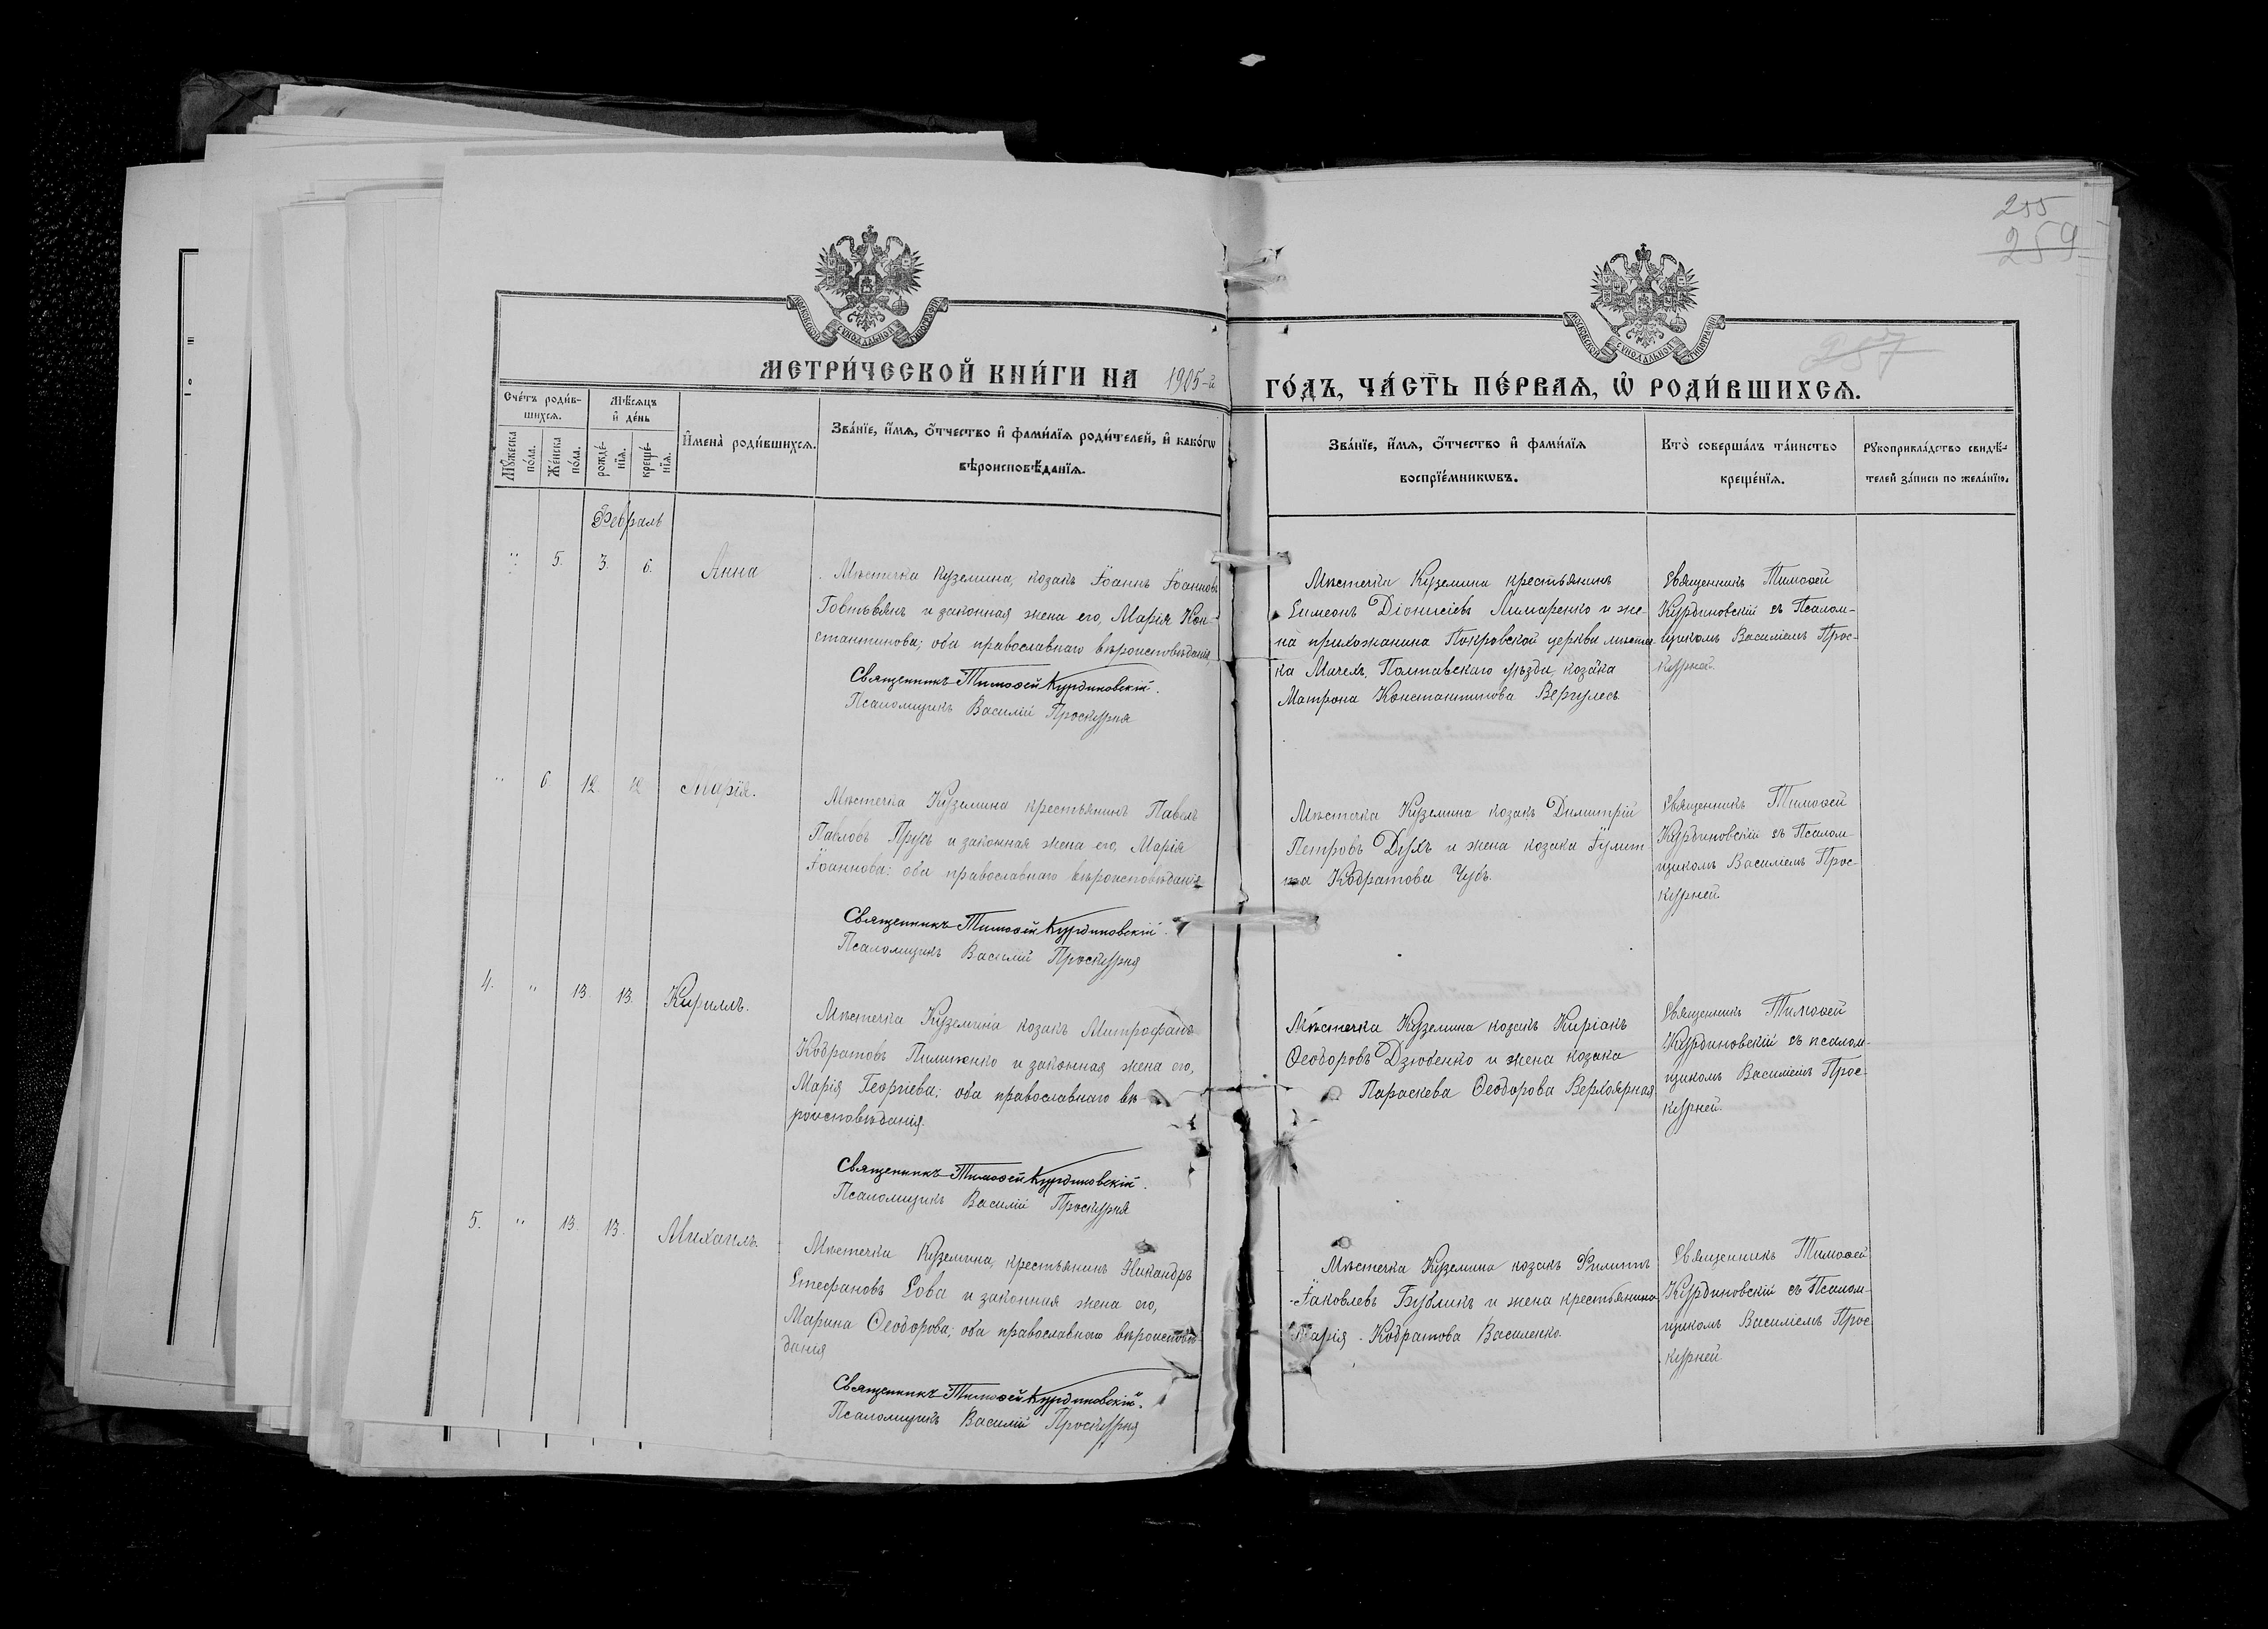 255
259
257
МОСКОВСКОЙ СѴНОДАЛЬНОЙ ТИПОГРАФІИ
МОСКОВСКОЙ СѴНОДАЛЬНОЙ ТИПОГРАФІИ
МЕТРИ́ЧЕСКОЙ КНИ́ГИ НА 1905-й
ГО́ДЪ, ЧА́СТЬ ПЕ́РВАѦ, Ѡ҆ РОДИ́ВШИХСѦ.
Сче́тъ роди́в-
шихсѧ.
Мꙋ́жеска
по́ла.
Же́нска
по́ла.
Мѣ́сѧцъ
и҆ де́нь
рожде́-
нїѧ.
креще́-
нїѧ.
И҆мена̀ роди́вшихсѧ.
Зва́нїе, и҆́мѧ, ѻ҆́тчество и҆ фами́лїѧ роди́телей, и҆ како́гѡ
вѣроисповѣ́данїѧ.
Зва́нїе, и҆́мѧ, ѻ҆́тчество и҆ фами́лїѧ
воспрїе́мникѡвъ.
Кто̀ соверша́лъ та́инство
креще́нїѧ.
Рꙋкоприкла́дство свидѣ́-
телей за́писи по жела́нїю.
Февраль
" 5. 3. 6. Анна
Мѣстечка Куземина, козакъ Іоаннъ Іоанновъ
Говтвянъ и законная жена его, Марія Кон-
стантинова; оба православнаго вѣроисповѣданія,
Священникъ Тимоѳей Курдиновскій.
Псаломщикъ Василій Проскурня
Мѣстечка Куземина крестьянинъ
Симеонъ Діонисіевъ Лимаренко и же-
на прихожанина Покровской церкви мѣстеч-
ка Полтавскаго уѣзда, козака
Матрона Константинова Вергулесъ.
Священникъ Тимоѳей
Курдиновскій съ Псалом-
щикомъ Василіемъ Прос-
курней.
" 6. 12. 12 Марія.
Мѣстечка Куземина крестьянинъ Павелъ
Павловъ Прусъ и законная жена его, Марія
Іоаннова: оба православнаго вѣроисповѣданія
Священникъ Тимоѳей Курдиновскій.
Псаломщикъ Василій Проскурня
Мѣстечка Куземина козакъ Димитрій
Петровъ Духъ и жена козака Іулит-
та Кодратова Чубъ.
Священникъ Тимоѳей
Курдиновскій съ Псалом-
щикомъ Василіемъ Прос-
курней.
4. " 13. 13. Кириллъ.
Мѣстечка Куземина козакъ Митрофанъ
Кодратовъ Пилипенко и законная жена его,
Марія Георгіева; оба православнаго вѣ-
роисповѣданія.
Священникъ Тимоѳей Курдиновскій.
Псаломщикъ Василій Проскурня
Мѣстечка Куземина козакъ Киріакъ
Ѳеодоровъ Дзюбенко и жена козака
Параскева Ѳеодорова Верхоярная
Священникъ Тимоѳей
Курдиновскій съ псалом-
щикомъ Василіемъ Прос-
курней.
5. " 13. 13. Михаилъ.
Мѣстечка Куземина, крестьянинъ Никандръ
Стефановъ Сова и законная жена его,
Марина Ѳеодорова; оба православнаго вѣроисповѣ-
данія
Священникъ Тимоѳей Курдиновскій.
Псаломщикъ Василій Проскурня
Мѣстечка Куземина козакъ Филиппъ
Іаковлевъ Бубликъ и жена крестьянина
Марія Кодратова Василенко.
Священникъ Тимоѳей
Курдиновскій съ Псалом-
щикомъ Василіемъ Прос-
курней